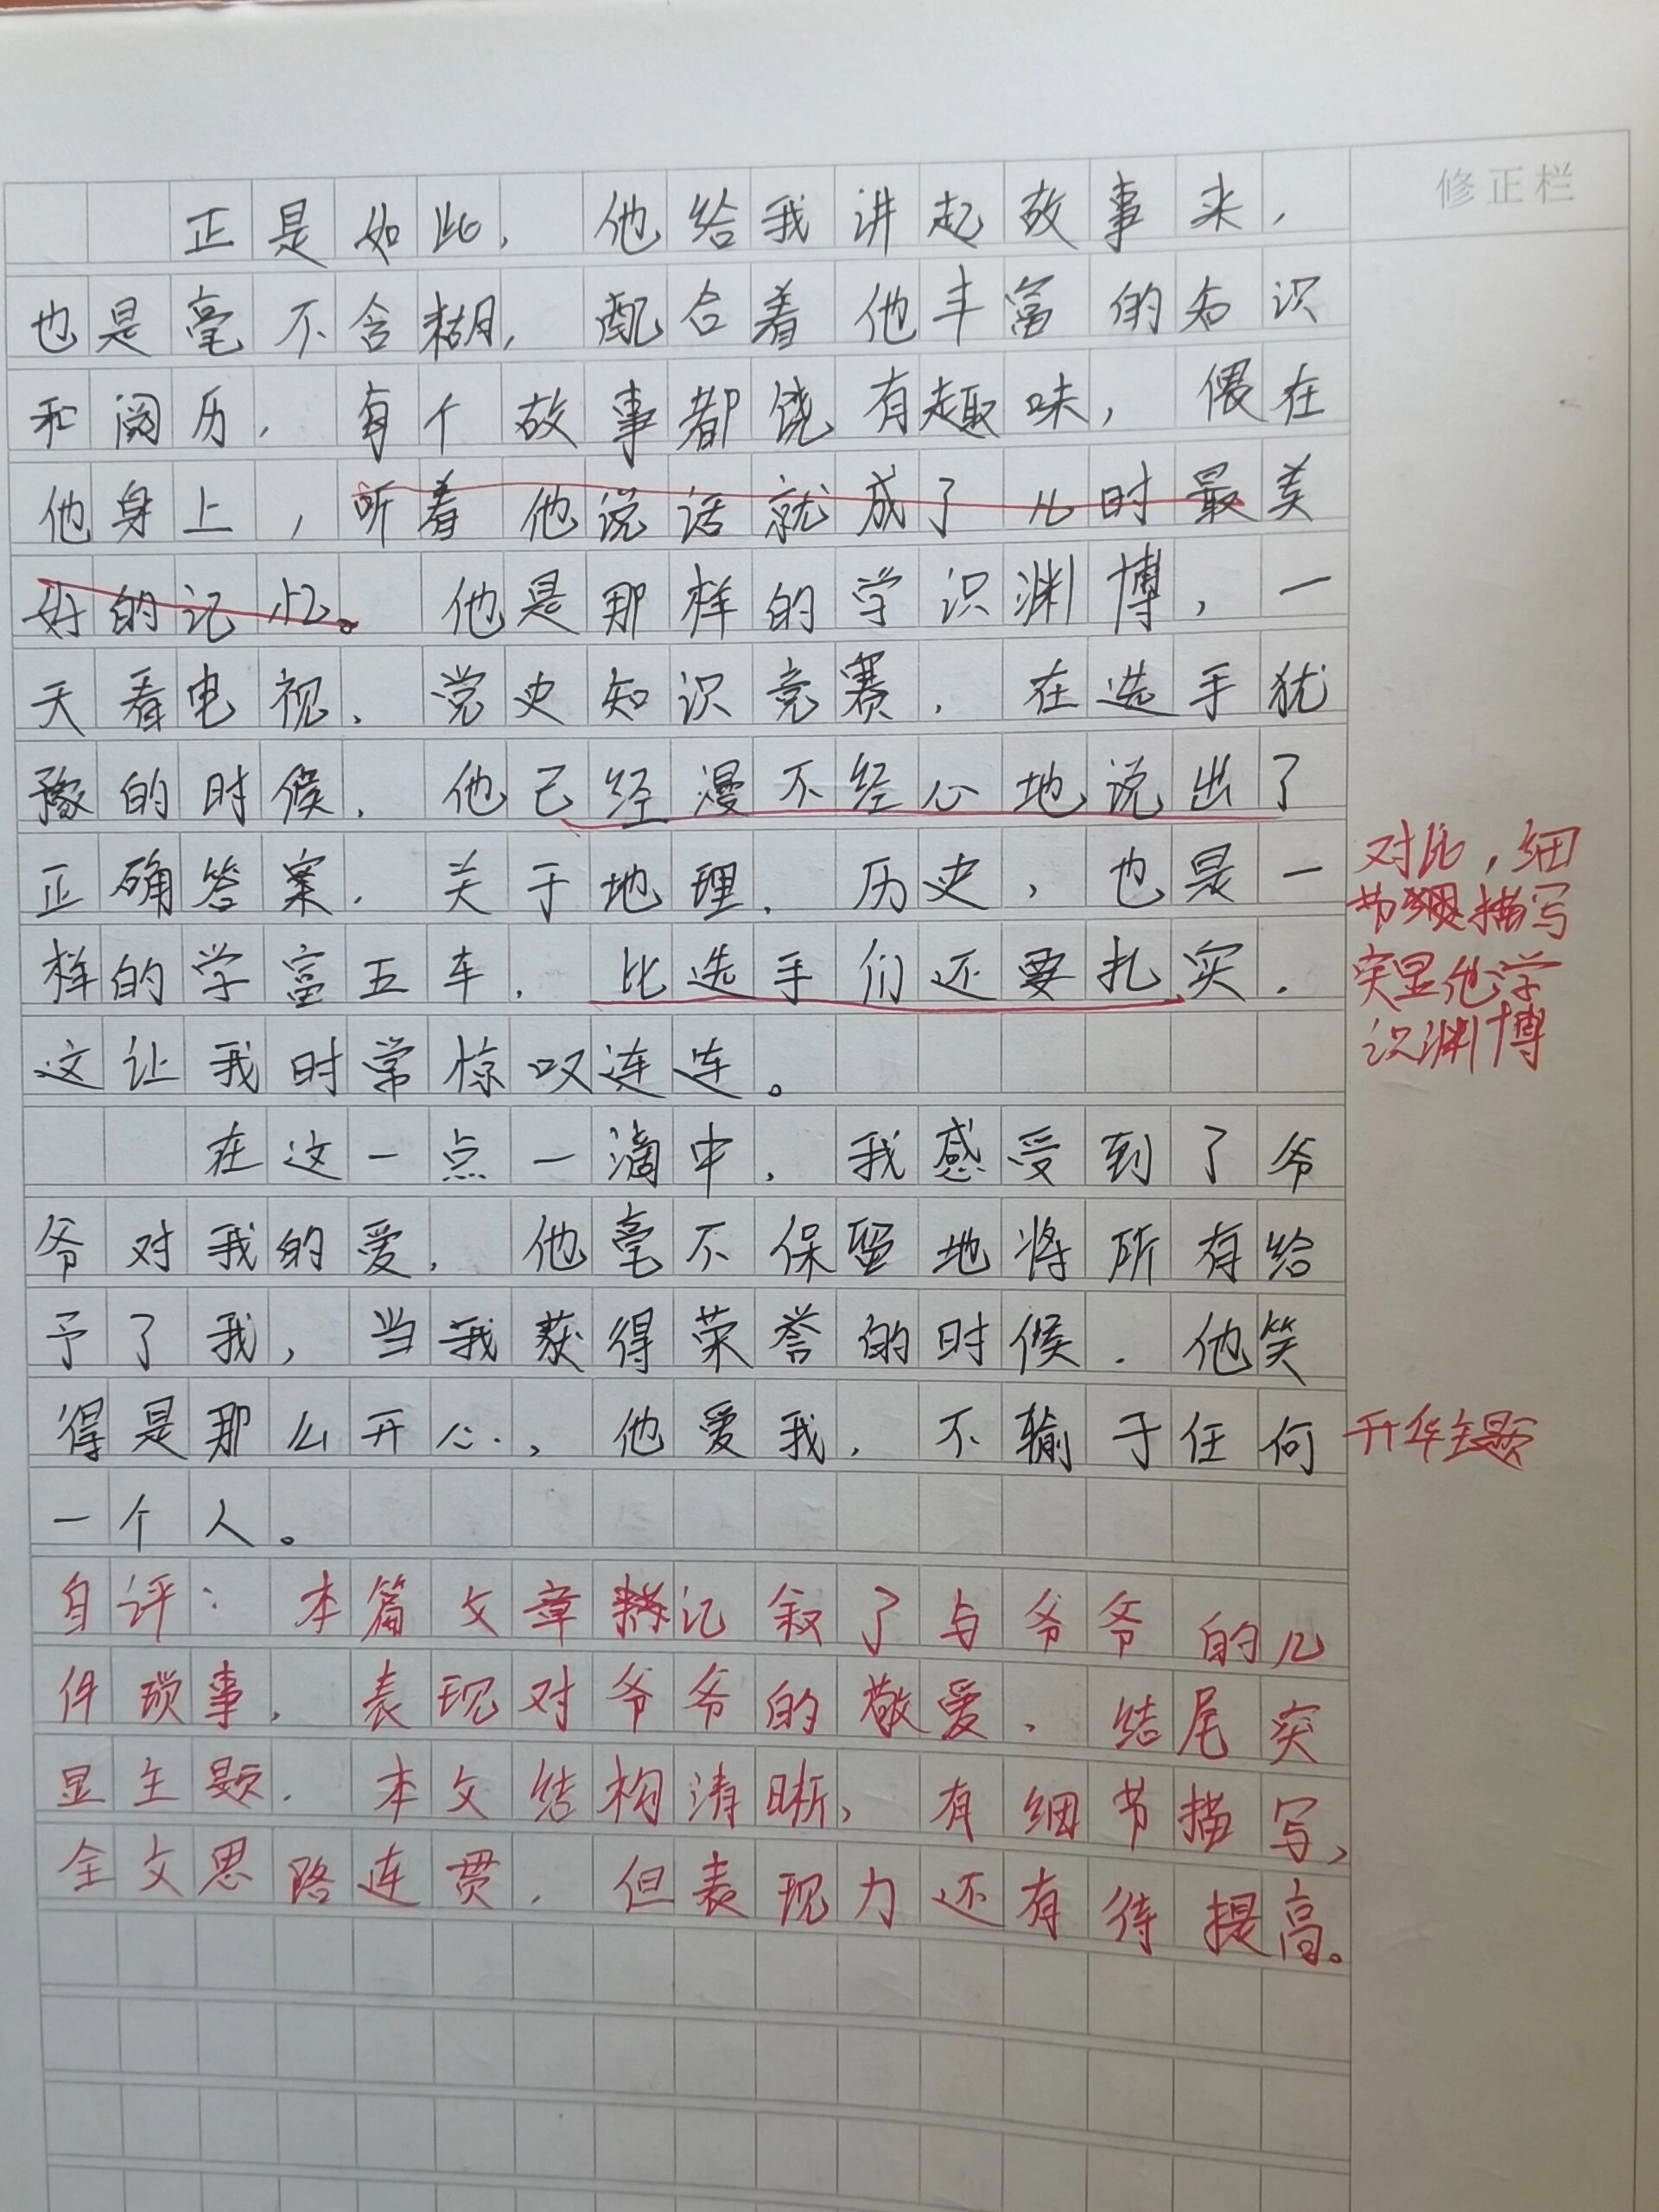 修正栏
正是如此，他给我讲起故事来，
也是毫不含糊，配合着他丰富的知识
和阅历，每个故事都饶有趣味，偎在
他身上，听着他说话就成了儿时最美
好的记忆。他是那样的学识渊博，一
天看电视，党史知识竞赛，在选手犹
豫的时候，他已经漫不经心地说出了
正确答案，关于地理、历史，也是一
样的学富五车，比选手们还要扎实，
这让我时常惊叹连连。
对比，细
节描写
突显他学
识渊博
在这一点一滴中，我感受到了爷
爷对我的爱，他毫不保留地将所有给
予了我，当我获得荣誉的时候，他笑
得是那么开心，他爱我，不输于任何
一个人。
升华主题
自评：本篇文章记叙了与爷爷的几
件琐事，表现对爷爷的敬爱，结尾突
显主题，本文结构清晰，有细节描写，
全文思路连贯，但表现力还有待提高。